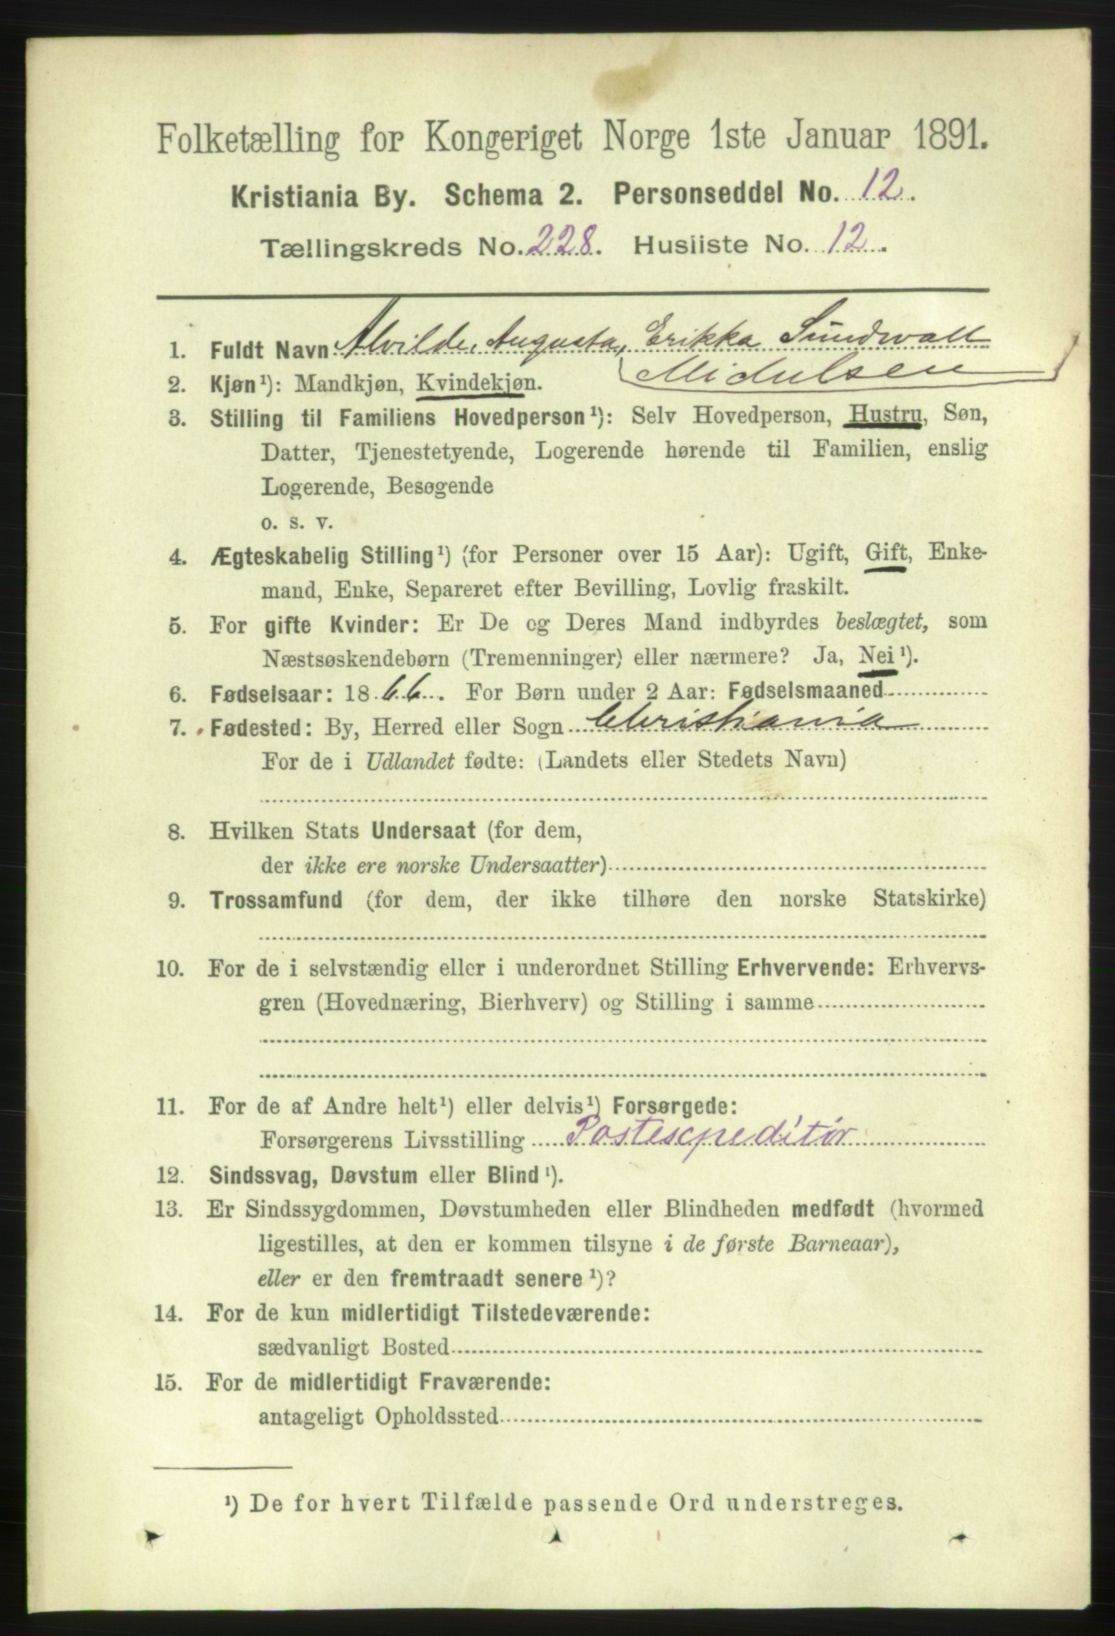 Folketælling for Kongeriget Norge 1ste Januar 1891.
Kristiania By. Schema 2. Personseddel No. 12.
Tællingskreds No. 228. Husliste No. 12.
1. Fuldt Navn Alvilde, Augusta, Erikka Sundwall
2. Kjøn¹): Mandkjøn, Kvindekjøn.
3. Stilling til Familiens Hovedperson¹): Selv Hovedperson, Hustru, Søn,
Datter, Tjenestetyende, Logerende hørende til Familien, enslig
Logerende, Besøgende
o. s. v.
4. Ægteskabelig Stilling¹) (for Personer over 15 Aar): Ugift, Gift, Enke-
mand, Enke, Separeret efter Bevilling, Lovlig fraskilt.
5. For gifte Kvinder: Er De og Deres Mand indbyrdes beslægtet, som
Næstsøskendebørn (Tremenninger) eller nærmere? Ja, Nei¹).
6. Fødselsaar: 1866. For Børn under 2 Aar: Fødselsmaaned
7. Fødested: By, Herred eller Sogn Christiania
For de i Udlandet fødte: (Landets eller Stedets Navn)
8. Hvilken Stats Undersaat (for dem,
der ikke ere norske Undersaatter)
9. Trossamfund (for dem, der ikke tilhøre den norske Statskirke)
10. For de i selvstændig eller i underordnet Stilling Erhvervende: Erhvervs-
gren (Hovednæring, Bierhverv) og Stilling i samme
11. For de af Andre helt¹) eller delvis¹) Forsørgede:
Forsørgerens Livsstilling Postexpeditør
12. Sindssvag, Døvstum eller Blind¹).
13. Er Sindssygdommen, Døvstumheden eller Blindheden medfødt (hvormed
ligestilles, at den er kommen tilsyne i de første Barneaar),
eller er den fremtraadt senere¹)?
14. For de kun midlertidigt Tilstedeværende:
sædvanligt Bosted
15. For de midlertidigt Fraværende:
antageligt Opholdssted
¹) De for hvert Tilfælde passende Ord understreges.